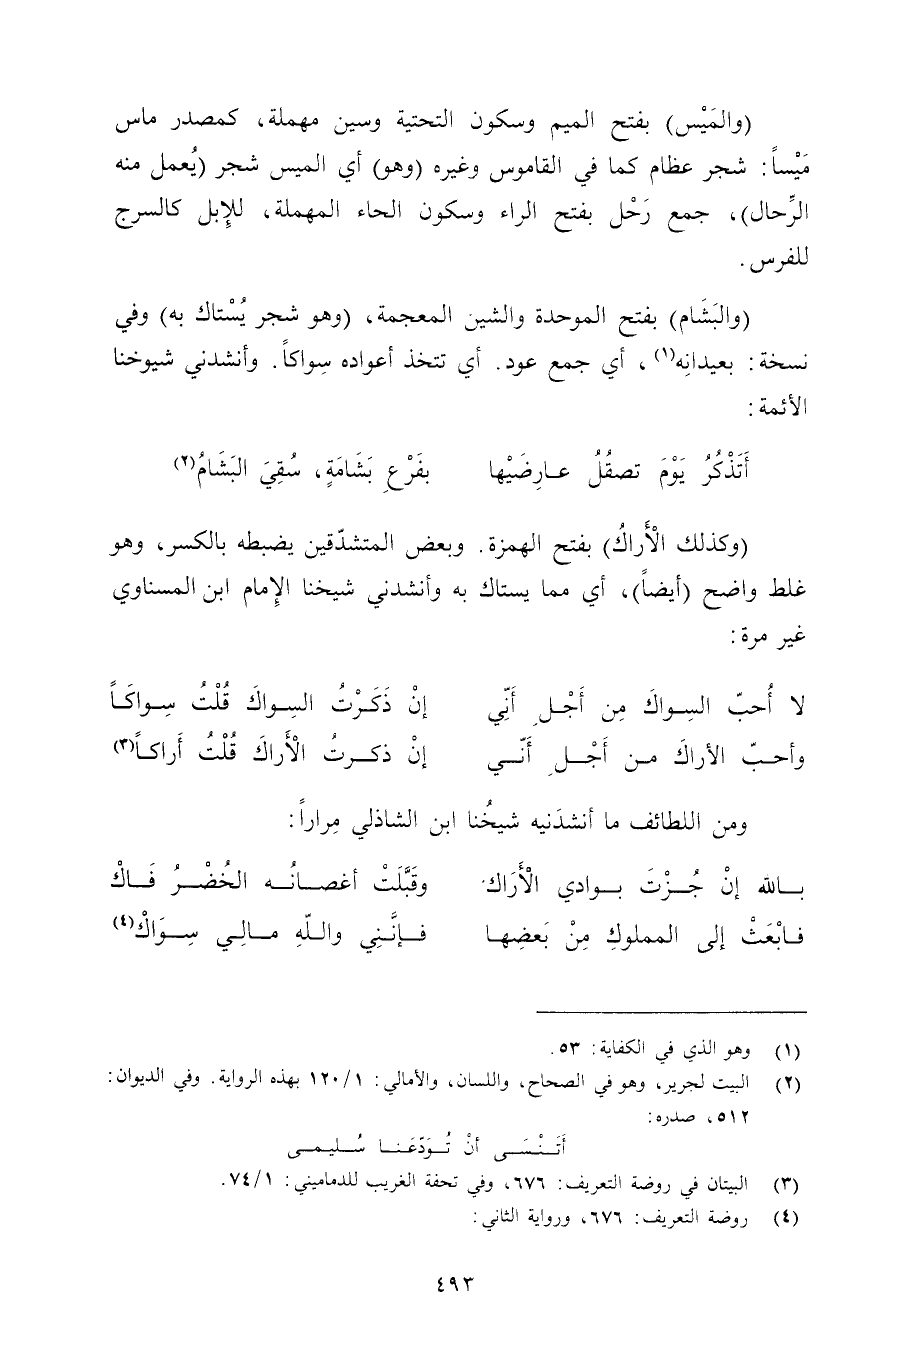 (والمَيْس) بفتح الميم وسكون التحتية وسين مهملة، كمصدر ماس
مَيْساً: شجر عظام كما في القاموس وغيره (وهو) أي الميس شجر (يُعمل منه
الرِّحال)، جمع رَحْل بفتح الراء وسكون الحاء المهملة، للإبل كالسرج
للفرس.
(والبَشَام) بفتح الموحدة والشين المعجمة، (وهو شجر يُسْتاك به) وفي
نسخة: بعيدانِه(١)، أي جمع عود. أي تتخذ أعواده سِواكاً. وأنشدني شيوخنا
الأئمة:
أَتَذْكُرُ يَوْمَ تصقُلُ عارِضَيْها بفَرْعِ بَشَامَةٍ، سُقِيَ البَشَامُ(٢)
(وكذلك الْأَراكُ) بفتح الهمزة. وبعض المتشدّقين يضبطه بالكسر، وهو
غلط واضح (أيضاً)، أي مما يستاك به وأنشدني شيخنا الإمام ابن المسناوي
غير مرة:
لا أُحبّ السِواكَ مِن أَجْلِ أَنِّي إنْ ذَكَرْتُ السِواكَ قُلْتُ سِواكَاً
وأحبّ الأراكَ من أَجْلِ أَنّي إنْ ذكرتُ الْأَراكَ قُلْتُ أَراكاً(٣)
ومن اللطائف ما أنشدَنيه شيخُنا ابن الشاذلي مِراراً:
بالله إنْ جُزْتَ بوادي الْأَرَاكْ وقَبَّلَتْ أغصانُه الخُضْرُ فَاكْ
فابْعَثْ إلى المملوكِ مِنْ بَعضِها فإنَّنِي واللّهِ مالِي سِوَاكْ(٤)
(١) وهو الذي في الكفاية: ٥٣.
(٢) البيت لجرير، وهو في الصحاح، واللسان، والأمالي: ١٢٠/١ بهذه الرواية. وفي الديوان:
٥١٢، صدره:
أَتَنْسَى أنْ تُوَدّعَنا سُليمى
(٣) البيتان في روضة التعريف: ٦٧٦، وفي تحفة الغريب للدماميني: ٧٤/١.
(٤) روضة التعريف: ٦٧٦، ورواية الثاني:
٤٩٣